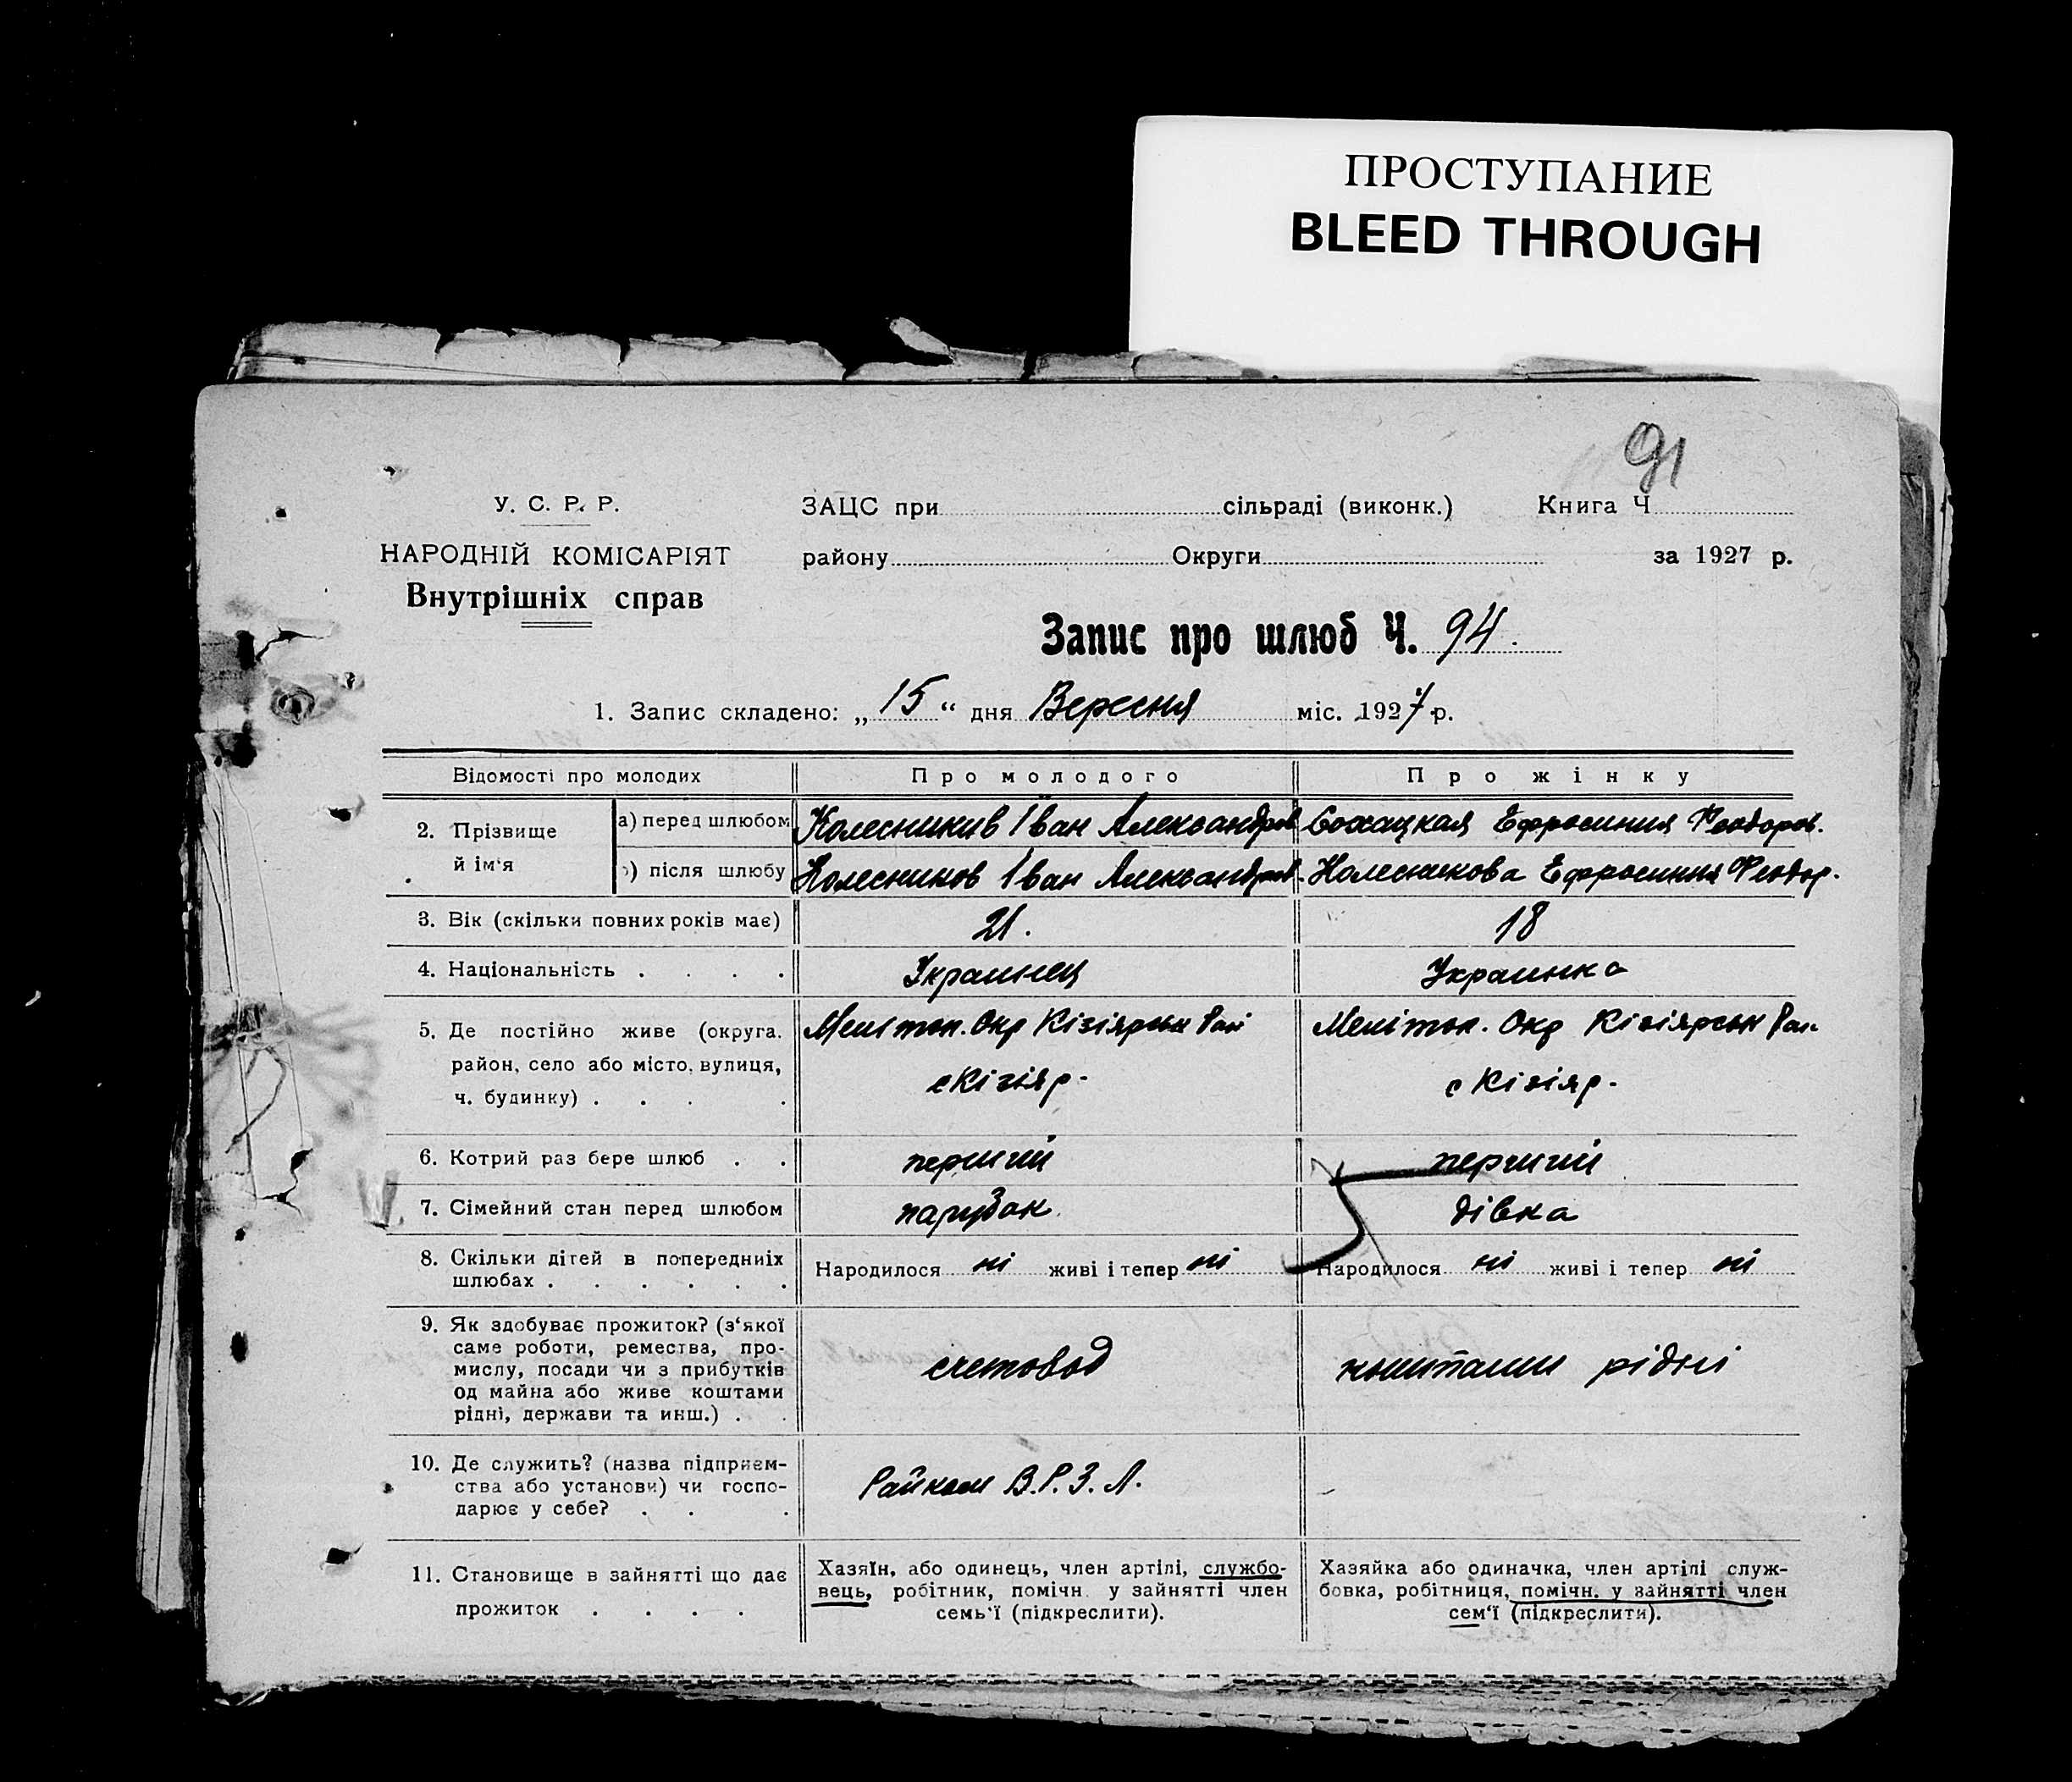 ПРОСТУПАНИЕ
BLEED THROUGH
91
У. С. Р. Р.
НАРОДНІЙ КОМІСАРІЯТ
Внутрішніх справ
ЗАЦС при сільраді (виконк.) Книга Ч
району Округи за 1927 р.
Запис про шлюб Ч. 94.
1. Запис складено: „15“ дня Вересня міс. 1927 р.
Відомості про молодих Про молодого Про жінку
2. Прізвище й ім'я
а) перед шлюбом Колесників Іван Александров Сохацкая Ефросиния Феодоров.
) після шлюбу Колесников Іван Александров. Колесникова Ефросиния Феодор.
3. Вік (скільки повних років має) 21. 18
4. Національність . . . . Украинец Украинка
5. Де постійно живе (округа. район, село або місто, вулиця, ч. будинку) . . . .
Мелітоп. Окр Кізіярськ Рай
с Кізіяр.
Мелітоп. Окр Кізіярськ Рай
с Кізіяр.
6. Котрий раз бере шлюб . . перший перший
7. Сімейний стан перед шлюбом парубок. дівка
8. Скільки дітей в попередніх шлюбах . . . . . .
Народилося ні живі і тепер ні Народилося ні живі і тепер ні
9. Як здобуває прожиток? (з'якої
саме роботи, ремества, про-
мислу, посади чи з прибутків
од майна або живе коштами
рідні, держави та инш.) . .
счетовод коштами рідні
10. Де служить? (назва підприєм-
ства або установи) чи госпо-
дарює у себе? . . .
Райком В.Р.З.Л.
11. Становище в зайнятті що дає
прожиток . . . .
Хазяїн, або одинець, член артілі, службо-
вець, робітник, помічн. у зайнятті член
семь'ї (підкреслити).
Хазяйка або одиначка, член артілі служ-
бовка, робітниця, помічн. у зайнятті член
сем'ї (підкреслити).